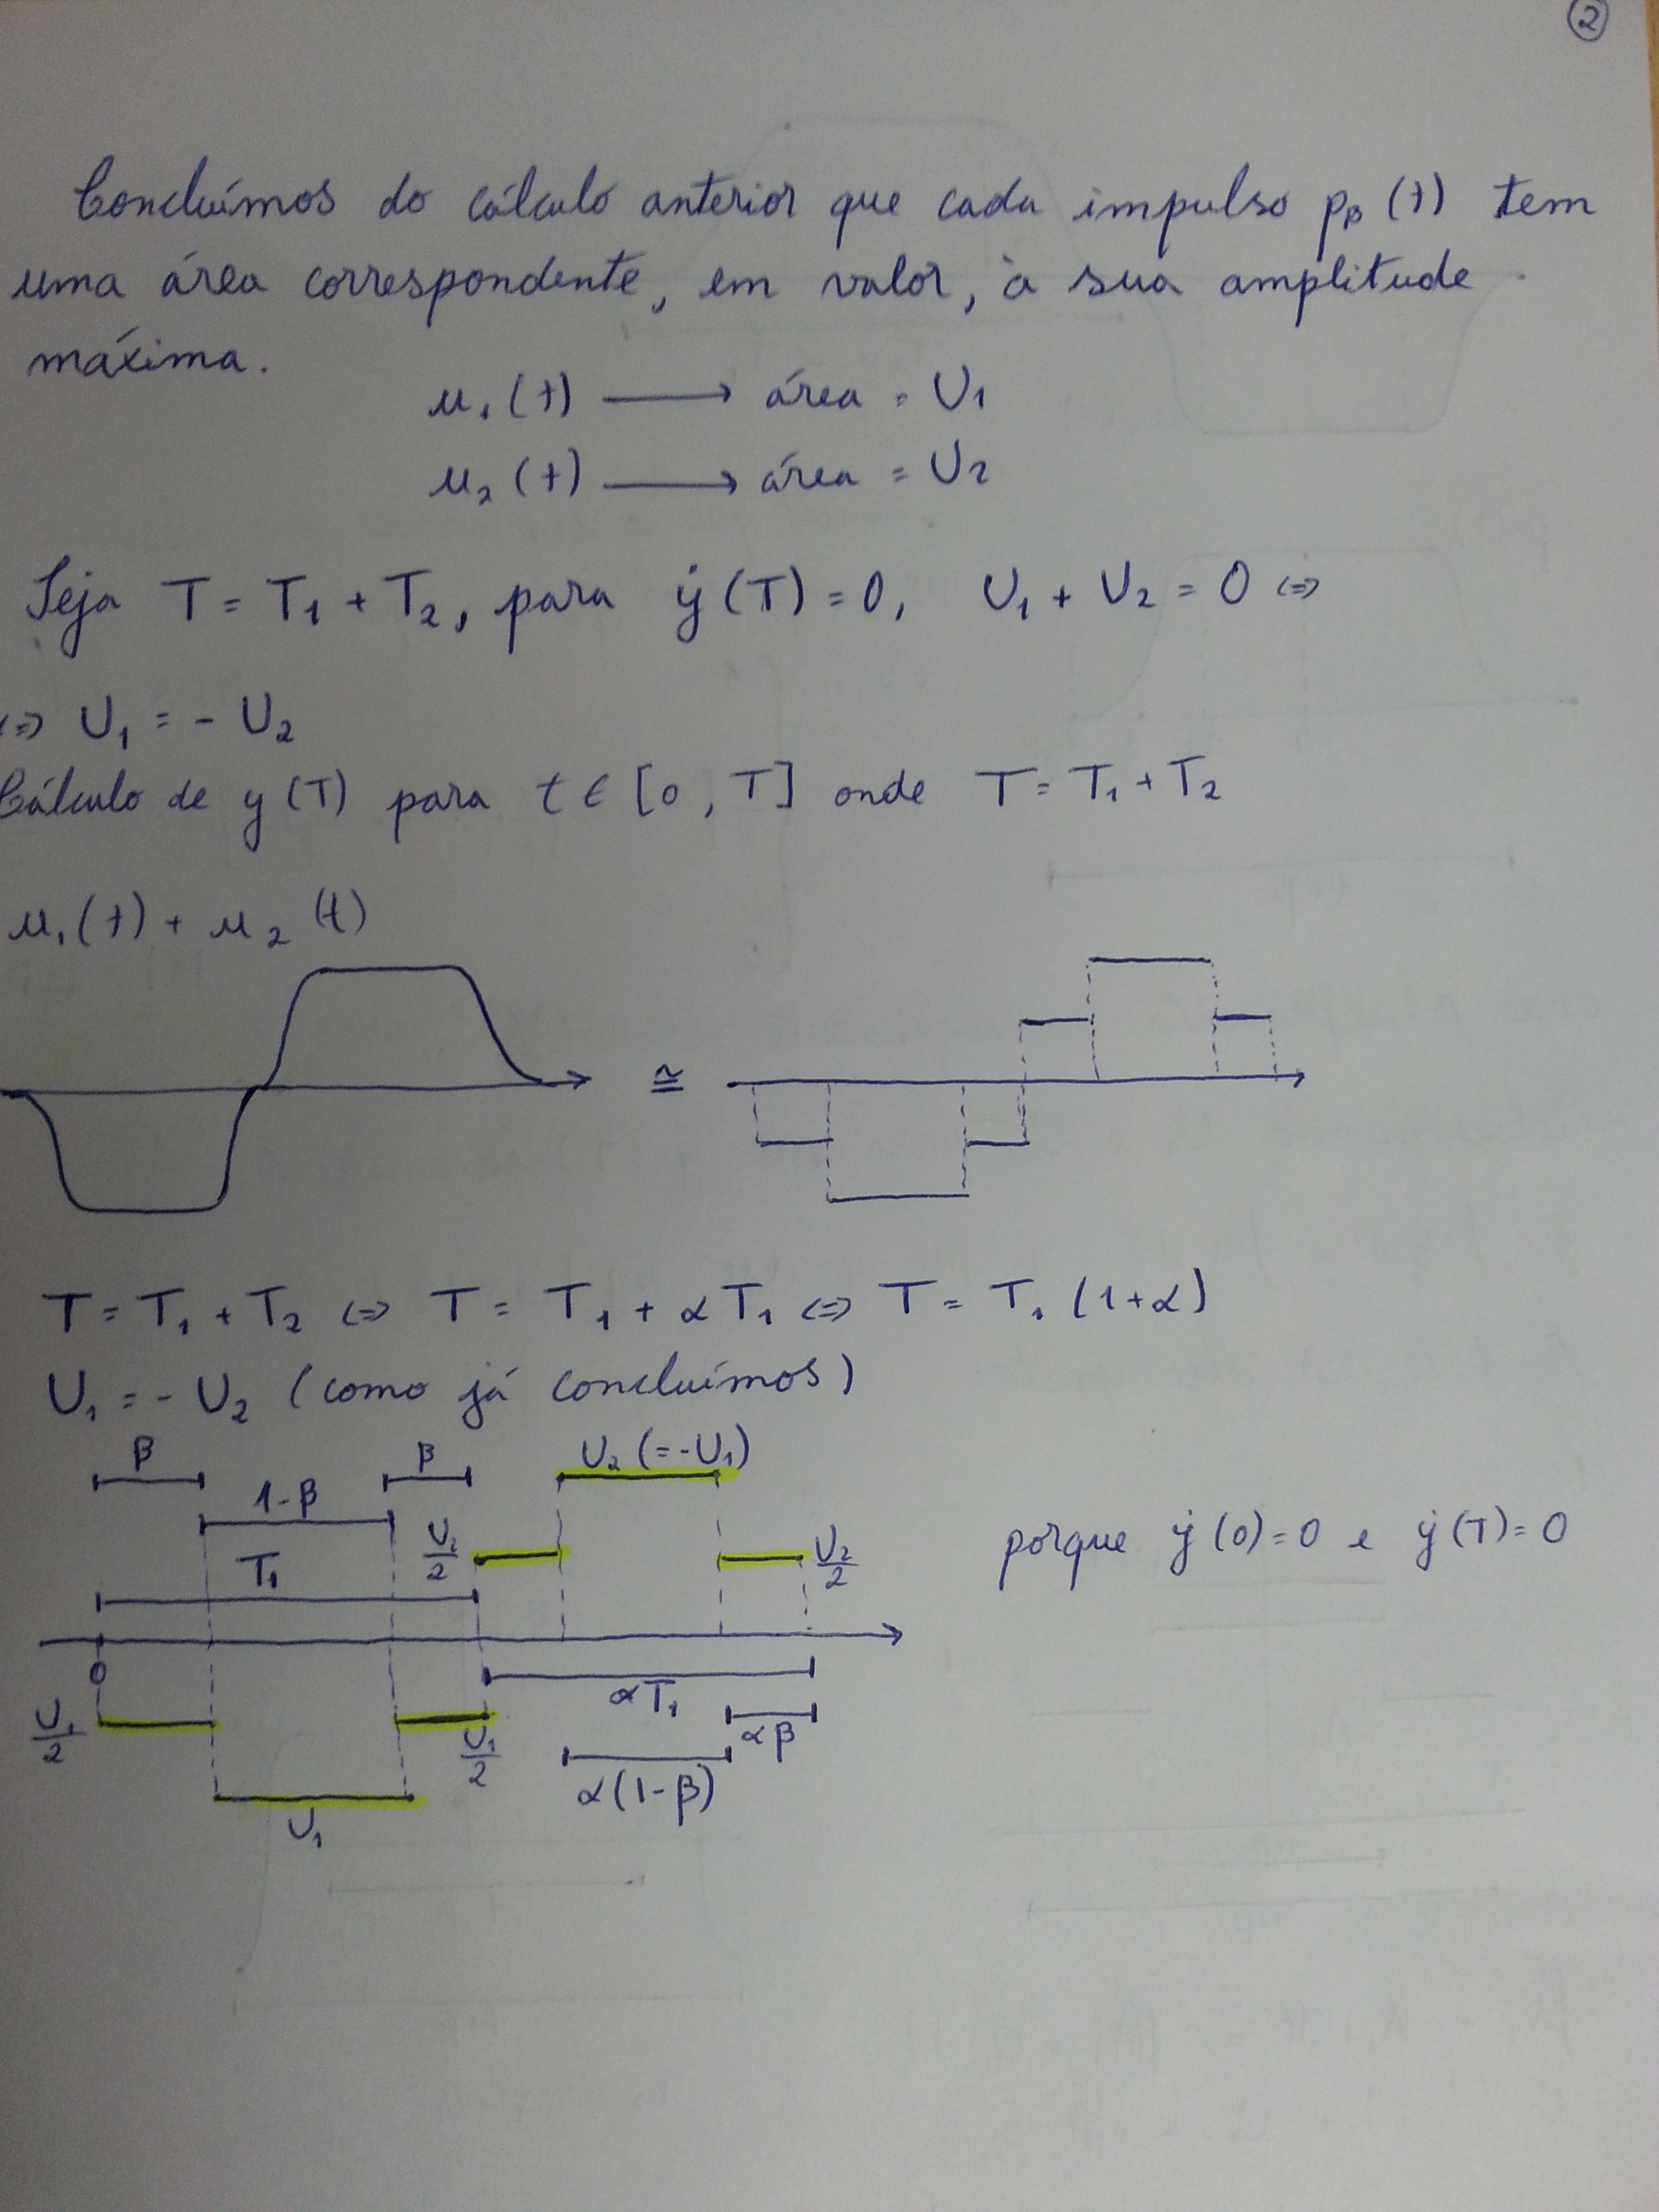 2
Concluímos do cálculo anterior que cada impulso pβ(t) tem
uma área correspondente, em valor, à sua amplitude
máxima.
u₁(t) ⟶ área = U₁
u₂(t) ⟶ área = U₂
Seja T = T₁ + T₂, para ẏ(T) = 0, U₁ + U₂ = 0 ⇔
⇔ U₁ = - U₂
Cálculo de y(T) para t ∈ [0, T] onde T = T₁ + T₂
u₁(t) + u₂(t)
≅
T = T₁ + T₂ ⇔ T = T₁ + αT₁ ⇔ T = T₁ (1+α)
U₁ = - U₂ (como já concluímos)
β β U₂ (= -U₁)
1-β
T₁ U₂/2 U₂/2 porque ẏ(0) = 0 e ẏ(T) = 0
0
αT₁
U₁/2 U₁/2 αβ
α(1-β)
U₁